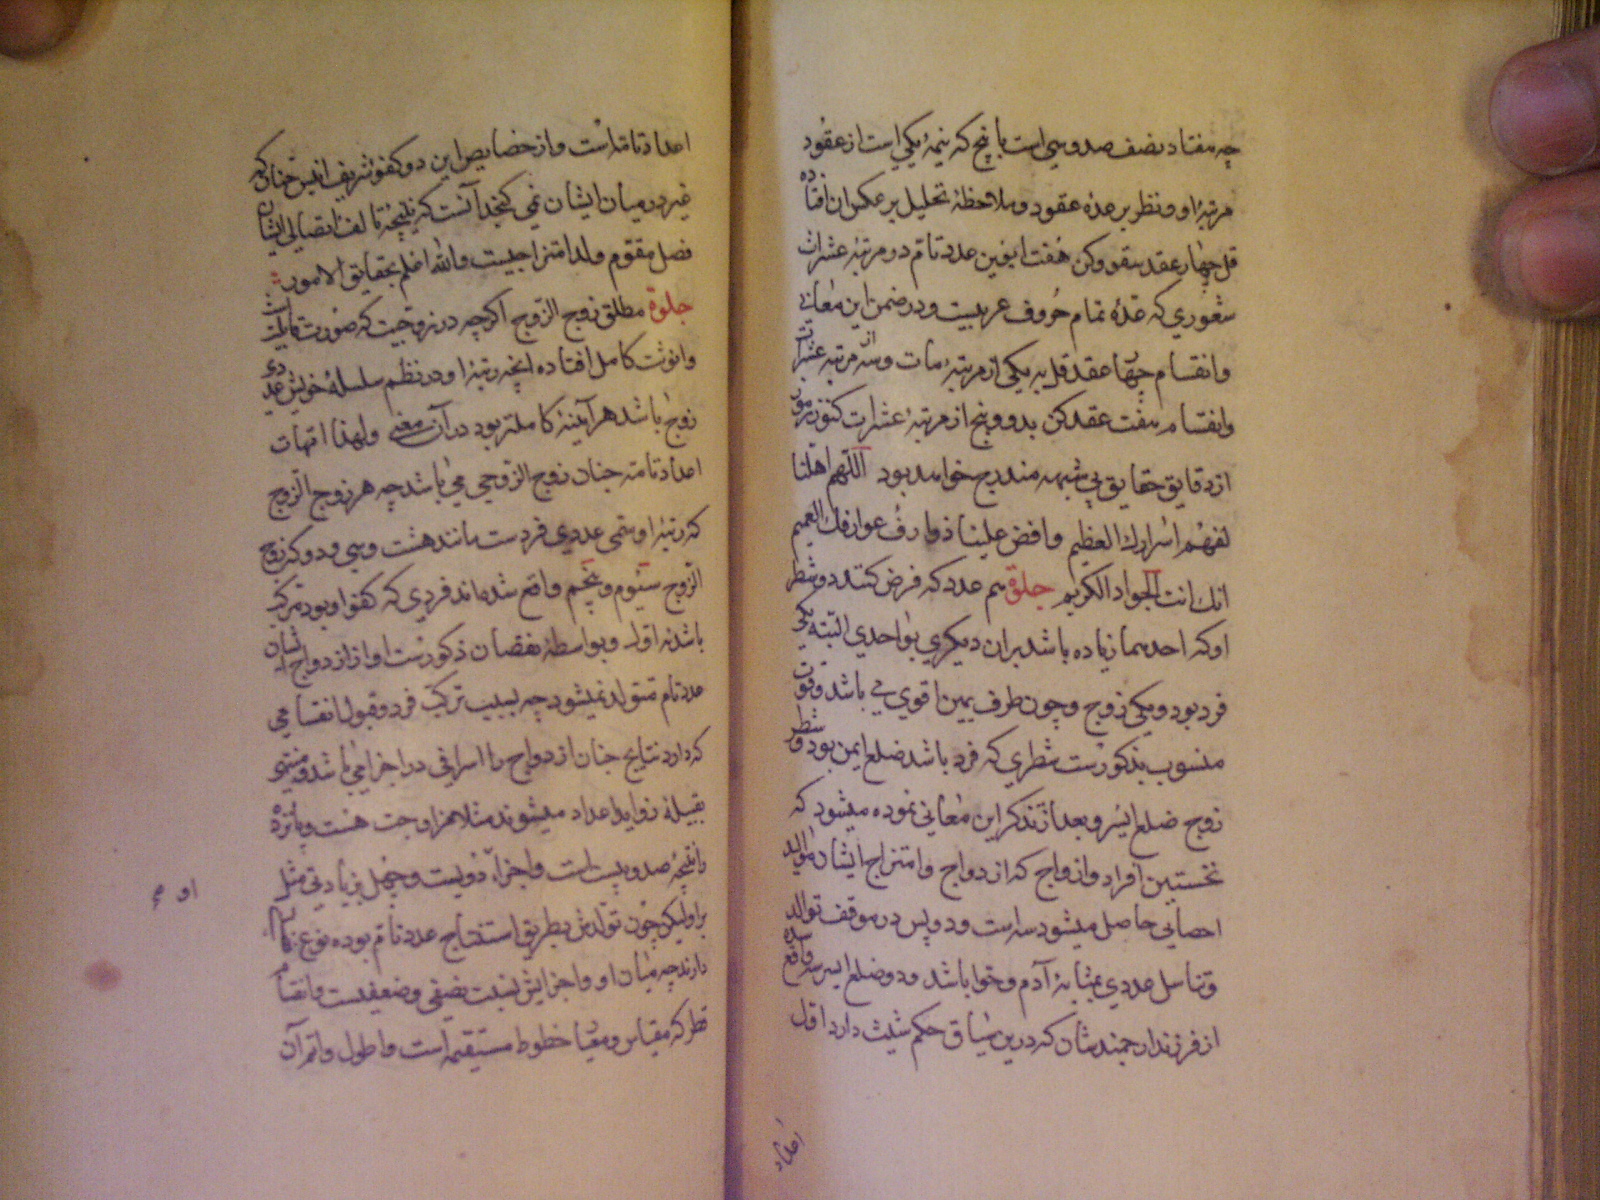 چه هفتاد نصف صد و سی است با پنج که نیمهٔ یکی است از عقود
مرتبهٔ او و نظر بر عدهٔ عقود و ملاحظهٔ تحلیل بر عکس ان افتاده
قل چهار عقد سقو وکن هفت این عدد تام دو مرتبهٔ عشرات
شعوری که عدهٔ تمام حروف عربیست و در ضمن این معانی
وانقسام چهار عقد قل به یکی از مرتبهٔ مات و سه از مرتبهٔ عشرات
وانقسام هفت عقد کن بدو و پنج از مرتبهٔ عشرات کنوز رموز
از دقایق حقایق بی شبهه مندرج خواهد بود اللهم اهلنا
لفهم اسرارك العظیم وافض علینا ذوارف عوارفك العمیم
انك انت الجواد الکریم جلوة هر عدد که فرض کنند دو شطر
او که احدهما زیاده باشد بران دیکری بواحدی البته یکی
فرد بود و یکی زوج و چون طرف یمین اقوی می باشد و قوت
منسوب بذکورست شطری که فرد باشد ضلع ایمن بود و شطر
زوج ضلع ایسر و بعد از تذکر این معانی نموده میشود که
نخستین افراد و ازواج که از دواج و امتزاج ایشان موالید
احصایی حاصل میشود سه است و دو پس در موقف توالد
و تناسل عددی بمثابهٔ آدم و حوا باشد و دو ضلع ایسر سه واقع شده
از فرزند ارجمند شان که درین سیاق حکم شیث دارد اقل
اعداد تامه است و از خصایص این دو کفو شریف انیس چنان که
غیر در میان ایشان نمی کنجد آنست که نتیجهٔ تالف اتصالی ایشان
فصل مقوم ولد امتزاجیست والله اعلم بحقایق الامور
جلوة مطلق زوج الزوج اکرچه در زوجیت که صورت قابلیت
وانوثت کامل افتاده انچه رتبهٔ او در نظم سلسلهٔ خویش عددی
زوج باشد هر آینه کاملتر بود در آن معنی ولهذا امهات
اعداد تامه جنان زوج الزوجی می باشد چه هر زوج الزوج
که رتبهٔ او سمی عددی فردست مانند هشت و سی و دو که زوج
الزوج سیوم و پنجم واقع شده اند فردی که کفو او بود مرکب
باشد نه اول و بواسطهٔ نقصان ذکورت او از ازدواج ایشان
عدد تام متولد نمیشود چه بسبب ترکیب فرد و قبول انقسامی
که دارد نتایج جنان ازدواج را اسرافی در اجزا می باشد و منتمی
بقبیلهٔ زواید اعداد میشوند مثلا مزاوجت هشت و پانزده
را نتیجهٔ صد و بیست است و اجزاء دویست و چهل بزیادتی مثل
بر او لیکن چون تولدش بطریق استنتاج عدد تام بوده نوع کمالی
دارند چه میان او و اجزایش نسبت نصفی و ضعفیست وانقسام
قطر که مقیاس و معیار خطوط مستقیمه است و اطول و اتم آن
او م